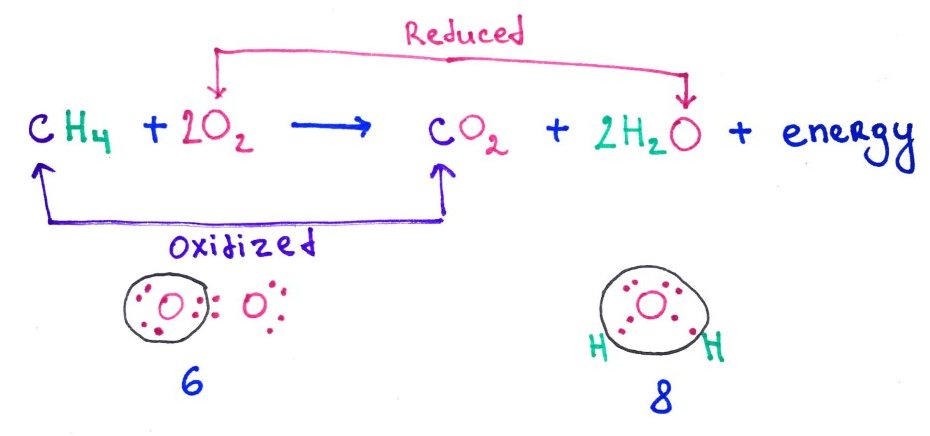 Reduced
CH₄ + 2O₂ → CO₂ + 2H₂O + energy
Oxidized
O :: O
O
H H
6
8